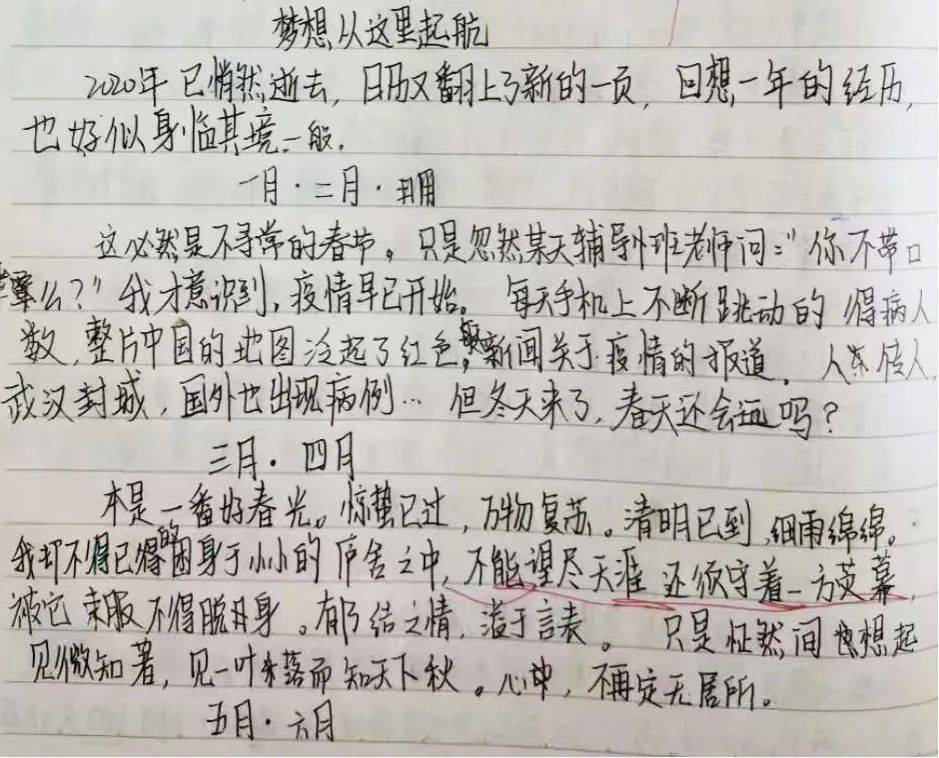 梦想从这里起航
2020年已悄然逝去,日历又翻上了新的一页,回想一年的经历,
也好似身临其境一般.
一月·二月
这必然是不寻常的春节。只是忽然某天辅导班老师问:"你不带口
罩么?"我才意识到,疫情早已开始。每天手机上不断跳动的得病人
数,整片中国的地图泛起了红色,新闻关于疫情的报道,人系传人,
武汉封城,国外也出现病例…但冬天来了,春天还会远吗?
三月·四月
本是一番好春光。惊蛰已过,万物复苏。清明已到,细雨绵绵。
我却不得已的困身于小小的庐舍之中,不能望尽天涯还须守着一方荧幕,
被它束服不得脱身。郁结之情,溢于言表。只是怔然间想起
见微知著,见一叶落而知天下秋。心中,不再定无居所。
五月·六月